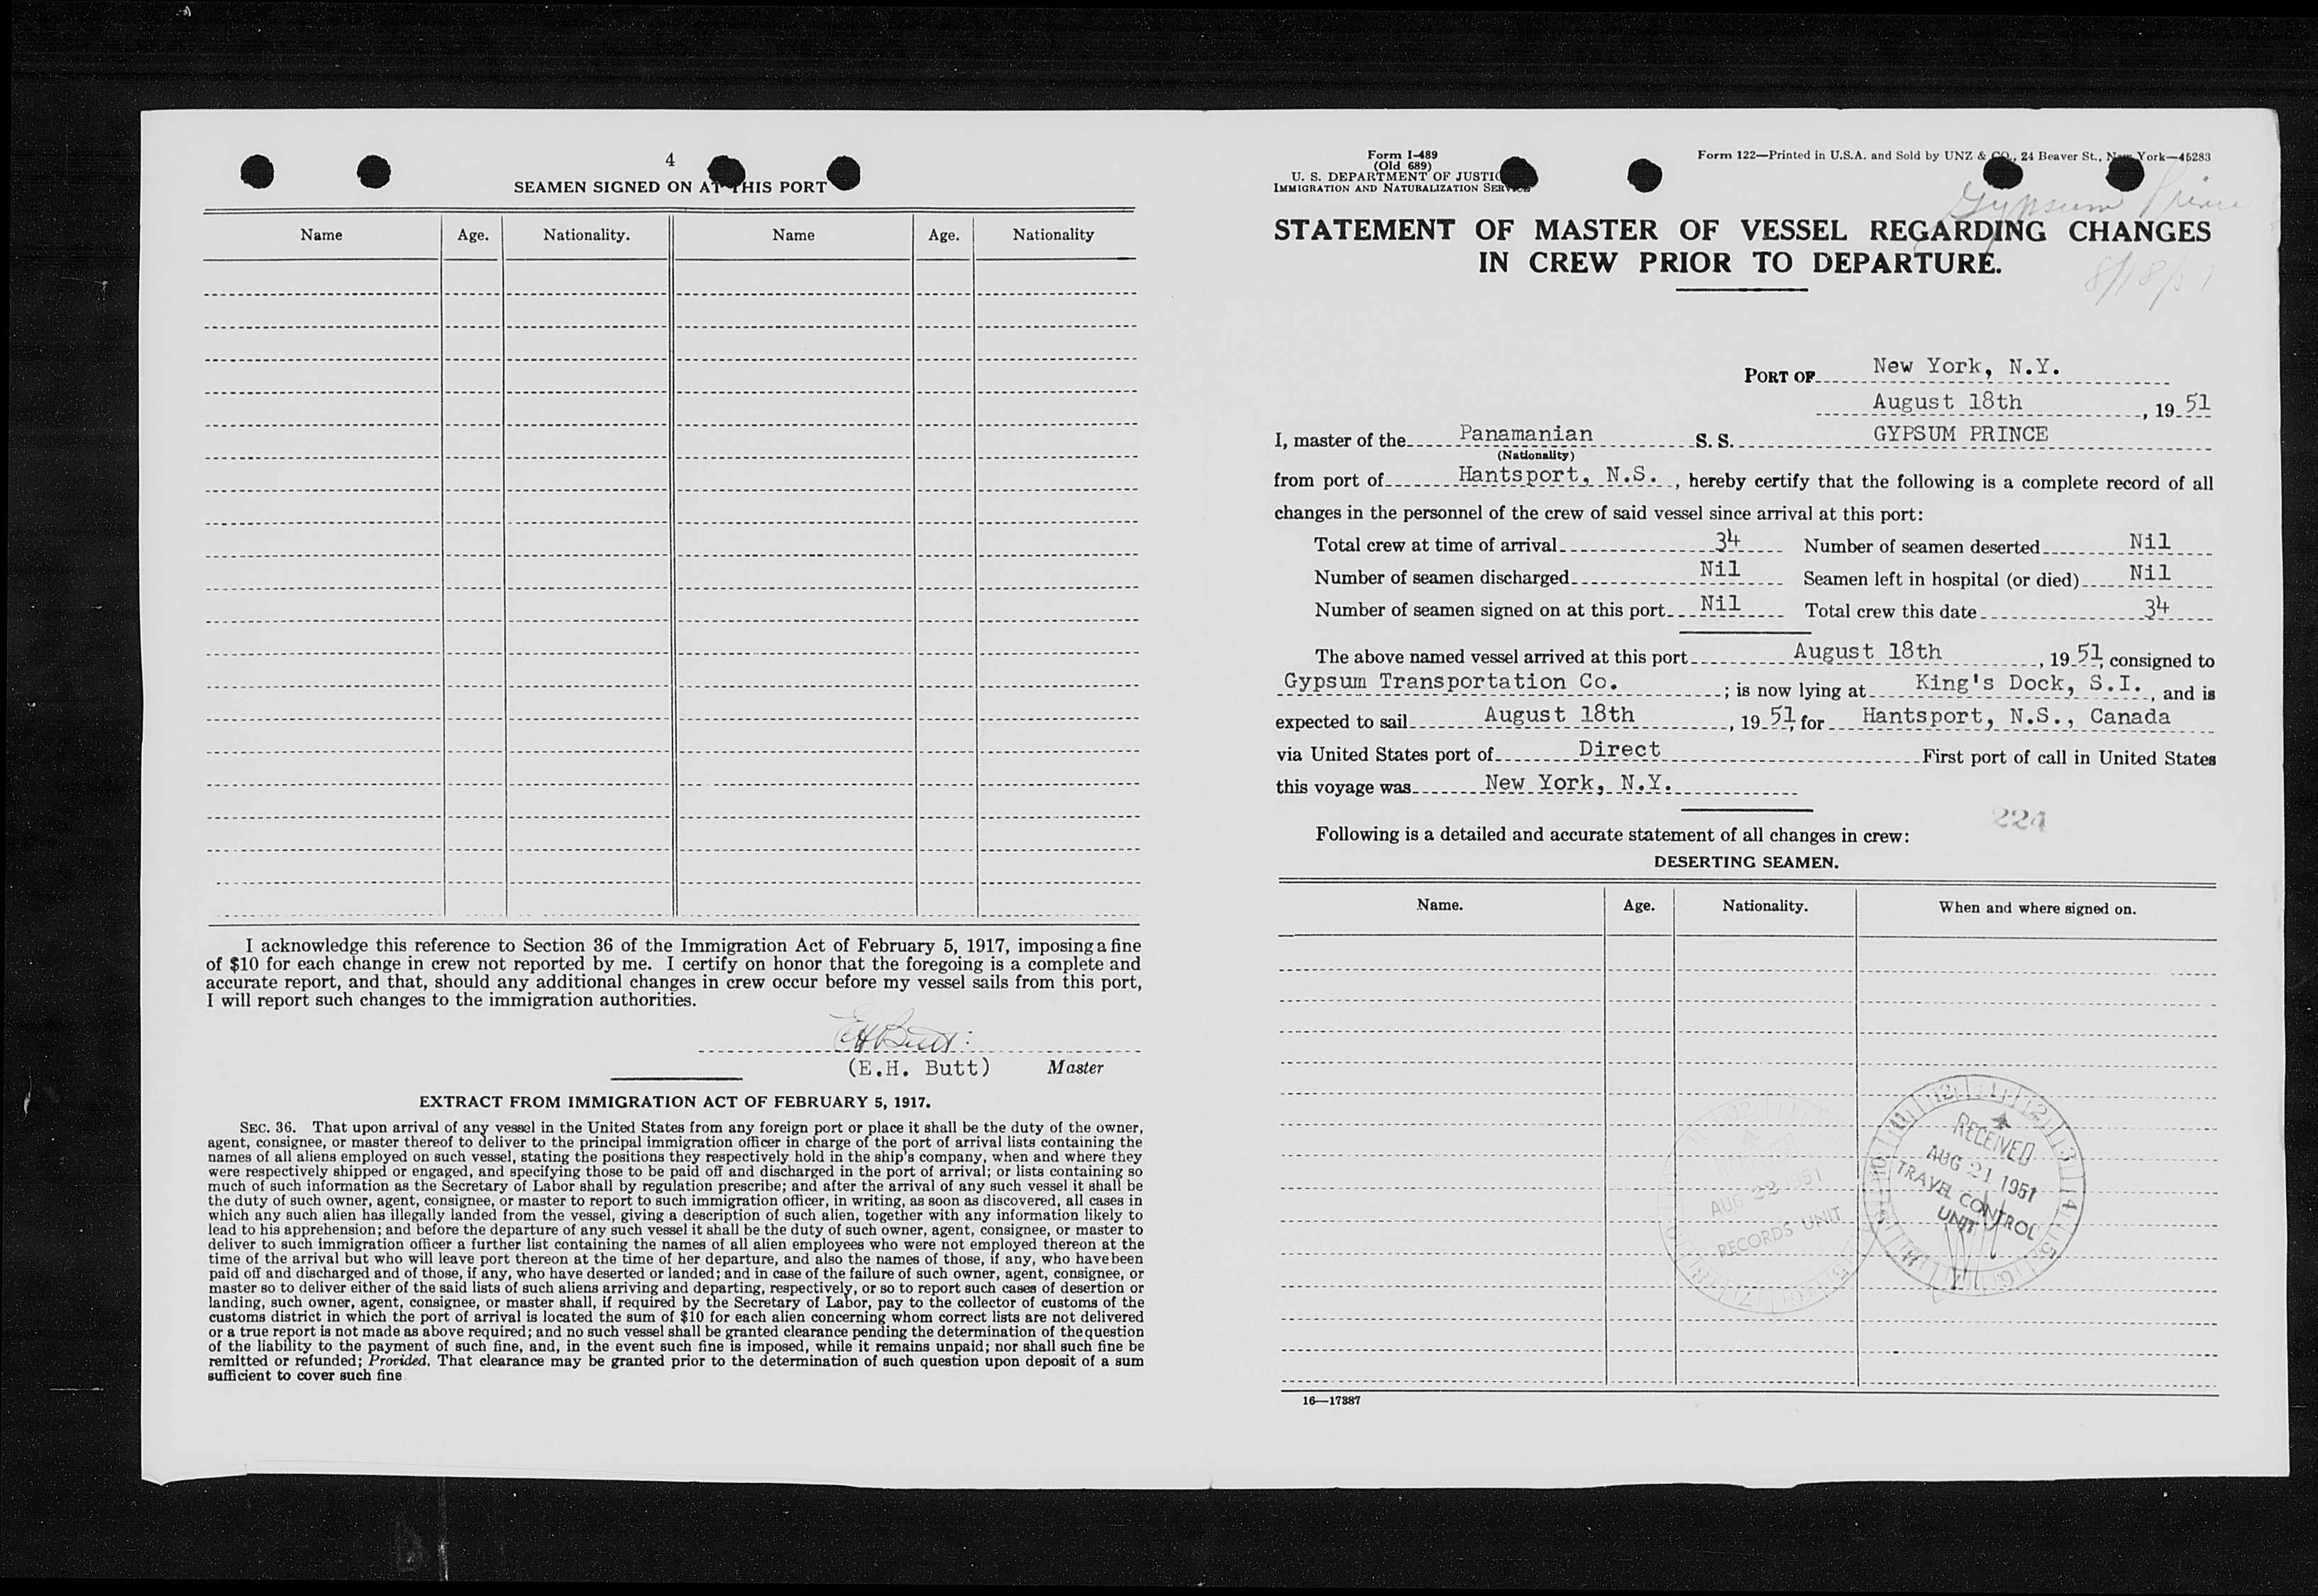 4
SEAMEN SIGNED ON AT THIS PORT
Name Age. Nationality. Name Age. Nationality
I acknowledge this reference to Section 36 of the Immigration Act of February 5, 1917, imposing a fine
of $10 for each change in crew not reported by me. I certify on honor that the foregoing is a complete and
accurate report, and that, should any additional changes in crew occur before my vessel sails from this port,
I will report such changes to the immigration authorities.
EH Butt
(E.H. Butt) Master
EXTRACT FROM IMMIGRATION ACT OF FEBRUARY 5, 1917.
SEC. 36. That upon arrival of any vessel in the United States from any foreign port or place it shall be the duty of the owner,
agent, consignee, or master thereof to deliver to the principal immigration officer in charge of the port of arrival lists containing the
names of all aliens employed on such vessel, stating the positions they respectively hold in the ship's company, when and where they
were respectively shipped or engaged, and specifying those to be paid off and discharged in the port of arrival; or lists containing so
much of such information as the Secretary of Labor shall by regulation prescribe; and after the arrival of any such vessel it shall be
the duty of such owner, agent, consignee, or master to report to such immigration officer, in writing, as soon as discovered, all cases in
which any such alien has illegally landed from the vessel, giving a description of such alien, together with any information likely to
lead to his apprehension; and before the departure of any such vessel it shall be the duty of such owner, agent, consignee, or master to
deliver to such immigration officer a further list containing the names of all alien employees who were not employed thereon at the
time of the arrival but who will leave port thereon at the time of her departure, and also the names of those, if any, who have been
paid off and discharged and of those, if any, who have deserted or landed; and in case of the failure of such owner, agent, consignee, or
master so to deliver either of the said lists of such aliens arriving and departing, respectively, or so to report such cases of desertion or
landing, such owner, agent, consignee, or master shall, if required by the Secretary of Labor, pay to the collector of customs of the
customs district in which the port of arrival is located the sum of $10 for each alien concerning whom correct lists are not delivered
or a true report is not made as above required; and no such vessel shall be granted clearance pending the determination of the question
of the liability to the payment of such fine, and, in the event such fine is imposed, while it remains unpaid; nor shall such fine be
remitted or refunded; Provided, That clearance may be granted prior to the determination of such question upon deposit of a sum
sufficient to cover such fine
Form I-489
(Old 689)
U. S. DEPARTMENT OF JUSTICE
IMMIGRATION AND NATURALIZATION SERVICE
Form 122—Printed in U.S.A. and Sold by UNZ & CO., 24 Beaver St., New York—45283
Gypsum Prince
STATEMENT OF MASTER OF VESSEL REGARDING CHANGES
IN CREW PRIOR TO DEPARTURE.
8/18/51
PORT OF New York, N.Y.
August 18th , 19 51
I, master of the Panamanian S. S. GYPSUM PRINCE
(Nationality)
from port of Hantsport, N.S. , hereby certify that the following is a complete record of all
changes in the personnel of the crew of said vessel since arrival at this port:
Total crew at time of arrival 34 Number of seamen deserted Nil
Number of seamen discharged Nil Seamen left in hospital (or died) Nil
Number of seamen signed on at this port Nil Total crew this date 34
The above named vessel arrived at this port August 18th , 19 51, consigned to
Gypsum Transportation Co. ; is now lying at King's Dock, S.I. , and is
expected to sail August 18th , 19 51, for Hantsport, N.S., Canada
via United States port of Direct First port of call in United States
this voyage was New York, N.Y.
224
Following is a detailed and accurate statement of all changes in crew:
DESERTING SEAMEN.
Name. Age. Nationality. When and where signed on.
RECEIVED
AUG 22 1951
RECORDS UNIT
RECEIVED
AUG 21 1951
TRAVEL CONTROL
UNIT
16—17387